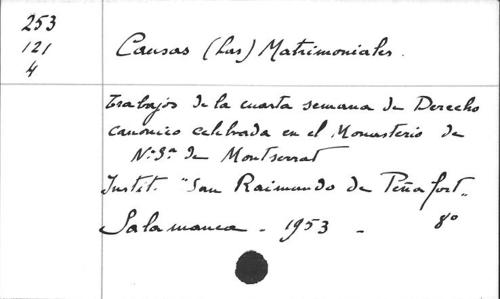 253
121
4
Causas (Las) Matrimoniales.
Trabajos de la cuarta semana de Derecho
canonico celebrada en el Monasterio de
N.ª S.ª de Montserrat
Instit. "San Raimundo de Peñafort"
Salamanca - 1953 - 8º